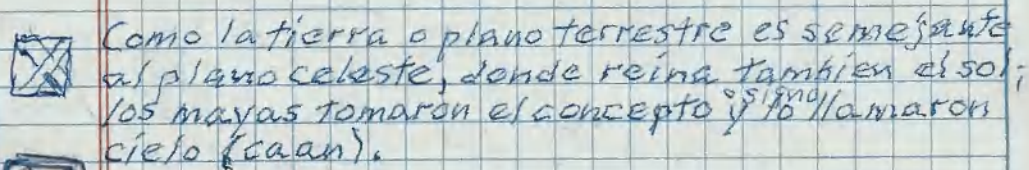 Como la tierra o plano terrestre es semejante
al plano celeste, donde reina tambien el sol;
los mayas tomaron el concepto o signo y lo llamaron
cielo (caan).